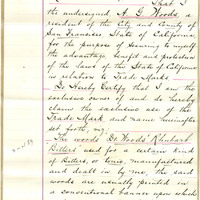 That I
the undersigned A. G. Woods, a
resident of the City and County of
San Francisco State of California
for the purpose of securing to myself
the advantage, benefit and protection
of the Laws of the State of California
in relation to Trade Marks
Do Hereby Certify that I am the
exclusive owner of and do hereby
claim the exclusive use of the
Trade Mark and name hereinafter
set forth, viz:
The words Dr. Woods' Rhubarb
Bitters used for a certain kind
of Bitters, or tonic, manufactured
and dealt in by me, the said
words are usually printed in
a conventional banner upon which